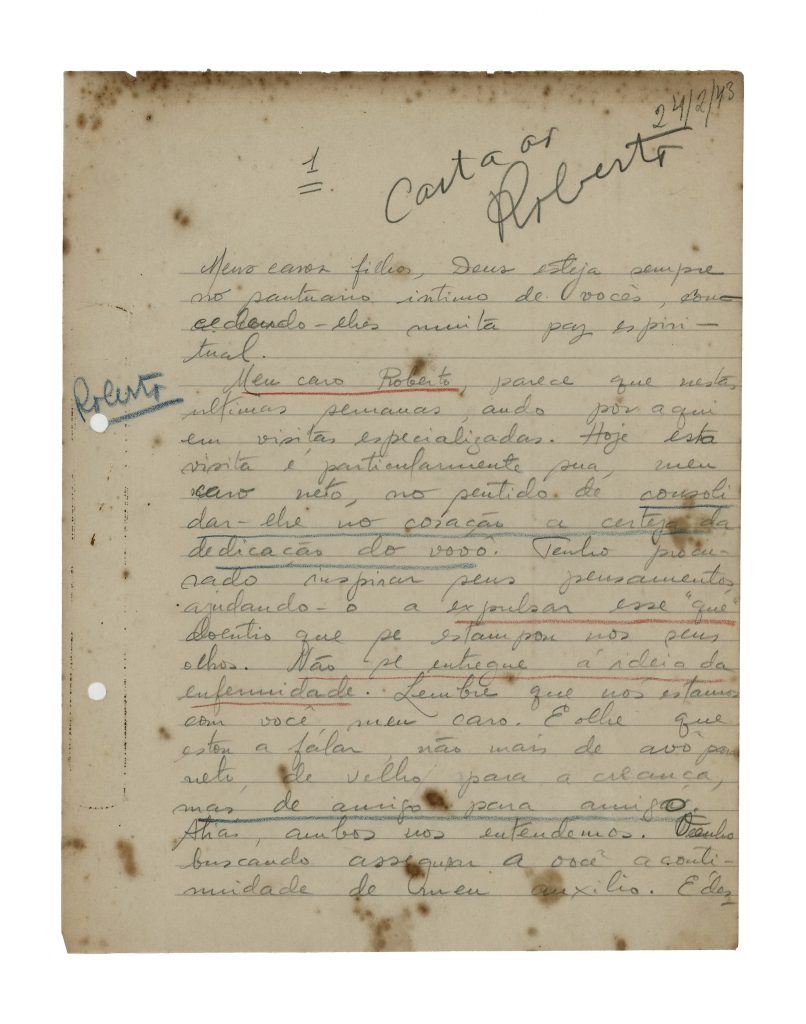 24/2/43
1
Carta ao
Roberto
Meus caros filhos, Deus esteja sempre
no santuario intimo de vocês, con-
cedendo-lhes muita paz espiri-
tual.
Roberto
Meu caro Roberto, parece que nestas
ultimas semanas, ando por aqui
em visitas especializadas. Hoje esta
visita é particularmente sua, meu
caro neto, no sentido de consoli
dar-lhe no coração a certeza da
dedicação do vovô. Tenho procu-
rado inspirar seus pensamentos,
ajudando-o a expulsar esse "quê"
doentio que se estampou nos seus
olhos. Não se entregue á ideia da
enfermidade. Lembre que nós estamos
com você meu caro. E olhe que
estou a falar, não mais de avô para
neto, de velho para a creança,
mas de amigo para amigo.
Alias, ambos nos entendemos. Venho
buscando assegurar a você a conti-
nuidade de meu auxilio. E